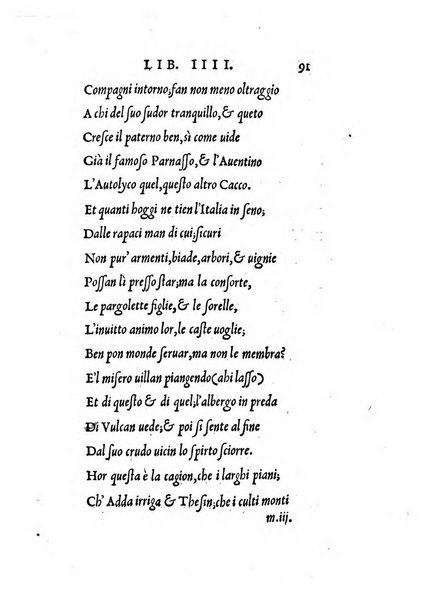 LIB. IIII. 91
Compagni intorno;fan non meno oltraggio
A chi del ſuo ſudor tranquillo,& queto
Creſce il paterno ben,sì come uide
Già il famoſo Parnaſſo,& l'Auentino
L'Autolyco quel,queſto altro Cacco.
Et quanti hoggi ne tien l'Italia in ſeno;
Dalle rapaci man di cui;ſicuri
Non pur' armenti,biade,arbori,& uignie
Poſſan lì preſſo ſtar;ma la conſorte,
Le pargolette figlie,& le ſorelle,
L'inuitto animo lor,le caſte uoglie;
Ben pon monde ſeruar,ma non le membra?
E'l miſero uillan piangendo(ahi laſſo)
Et di queſto & di quel;l'albergo in preda
Di Vulcan uede;& poi ſi ſente al fine
Dal ſuo crudo uicin lo ſpirto ſciorre.
Hor queſta è la cagion,che i larghi piani;
Ch' Adda irriga & Theſin;che i culti monti
m.iij.